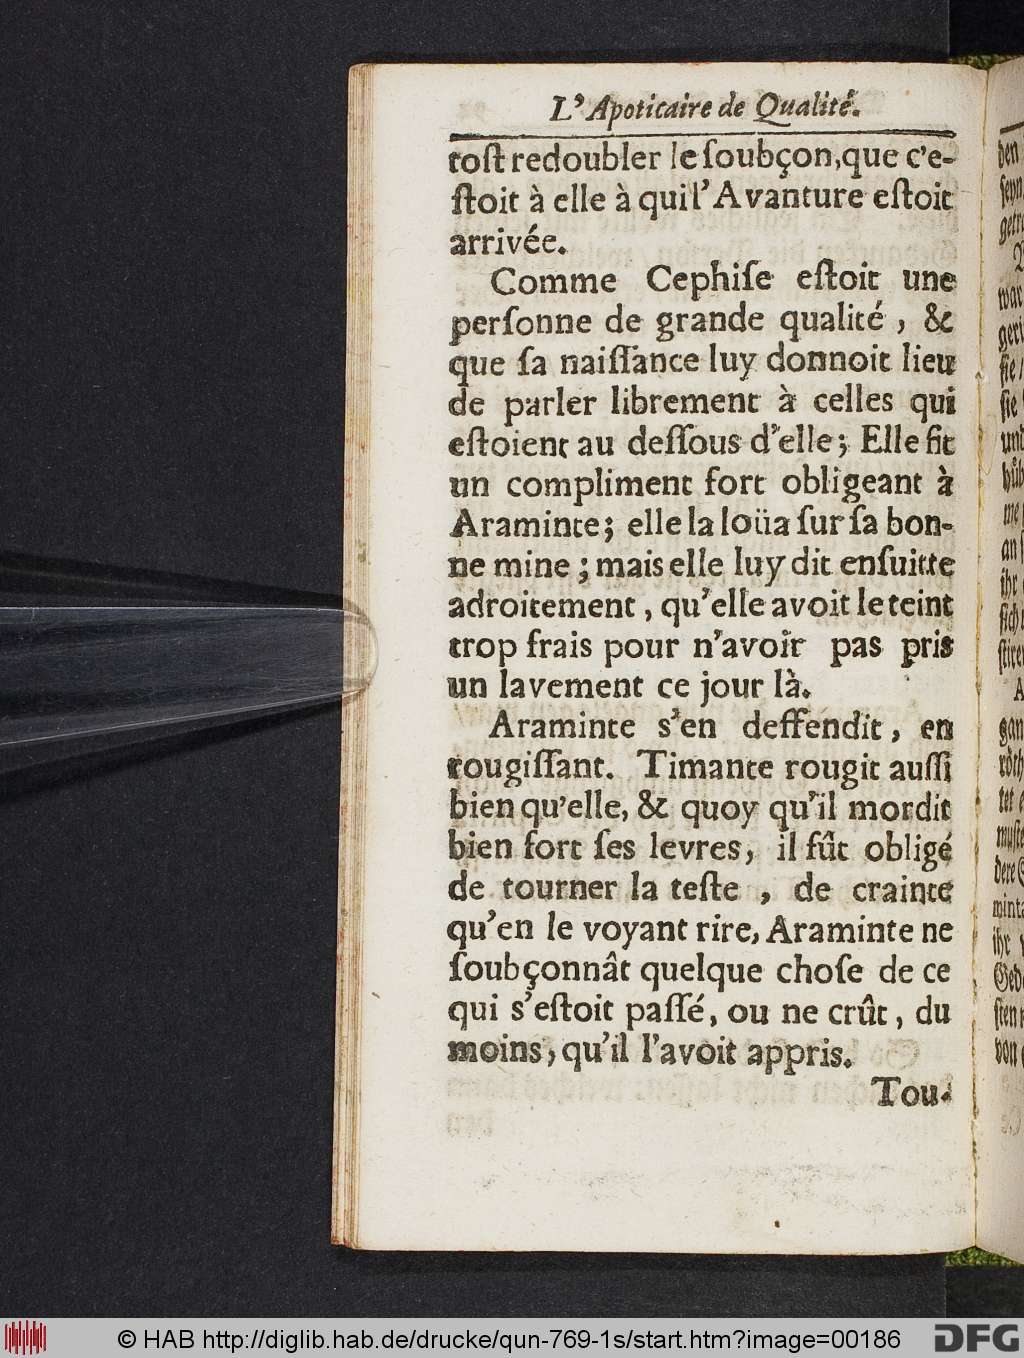 L'Apoticaire de Qualité.
toſt redoubler le ſoubçon, que c'e-
ſtoit à elle à qui l'Avanture eſtoit
arrivée.
Comme Cephiſe eſtoit une
perſonne de grande qualité, &
que ſa naiſſance luy donnoit lieu
de parler librement à celles qui
eſtoient au deſſous d'elle; Elle fit
un compliment fort obligeant à
Araminte; elle la loüa ſur ſa bon-
ne mine; mais elle luy dit enſuitte
adroitement, qu'elle avoit le teint
trop frais pour n'avoir pas pris
un lavement ce jour là.
Araminte s'en deffendit, en
rougiſſant. Timante rougit auſſi
bien qu'elle, & quoy qu'il mordit
bien fort ſes levres, il fût obligé
de tourner la teſte, de crainte
qu'en le voyant rire, Araminte ne
ſoubçonnât quelque choſe de ce
qui s'eſtoit paſſé, ou ne crût, du
moins, qu'il l'avoit appris.
Tou-
© HAB http://diglib.hab.de/drucke/qun-769-1s/start.htm?image=00186
DFG